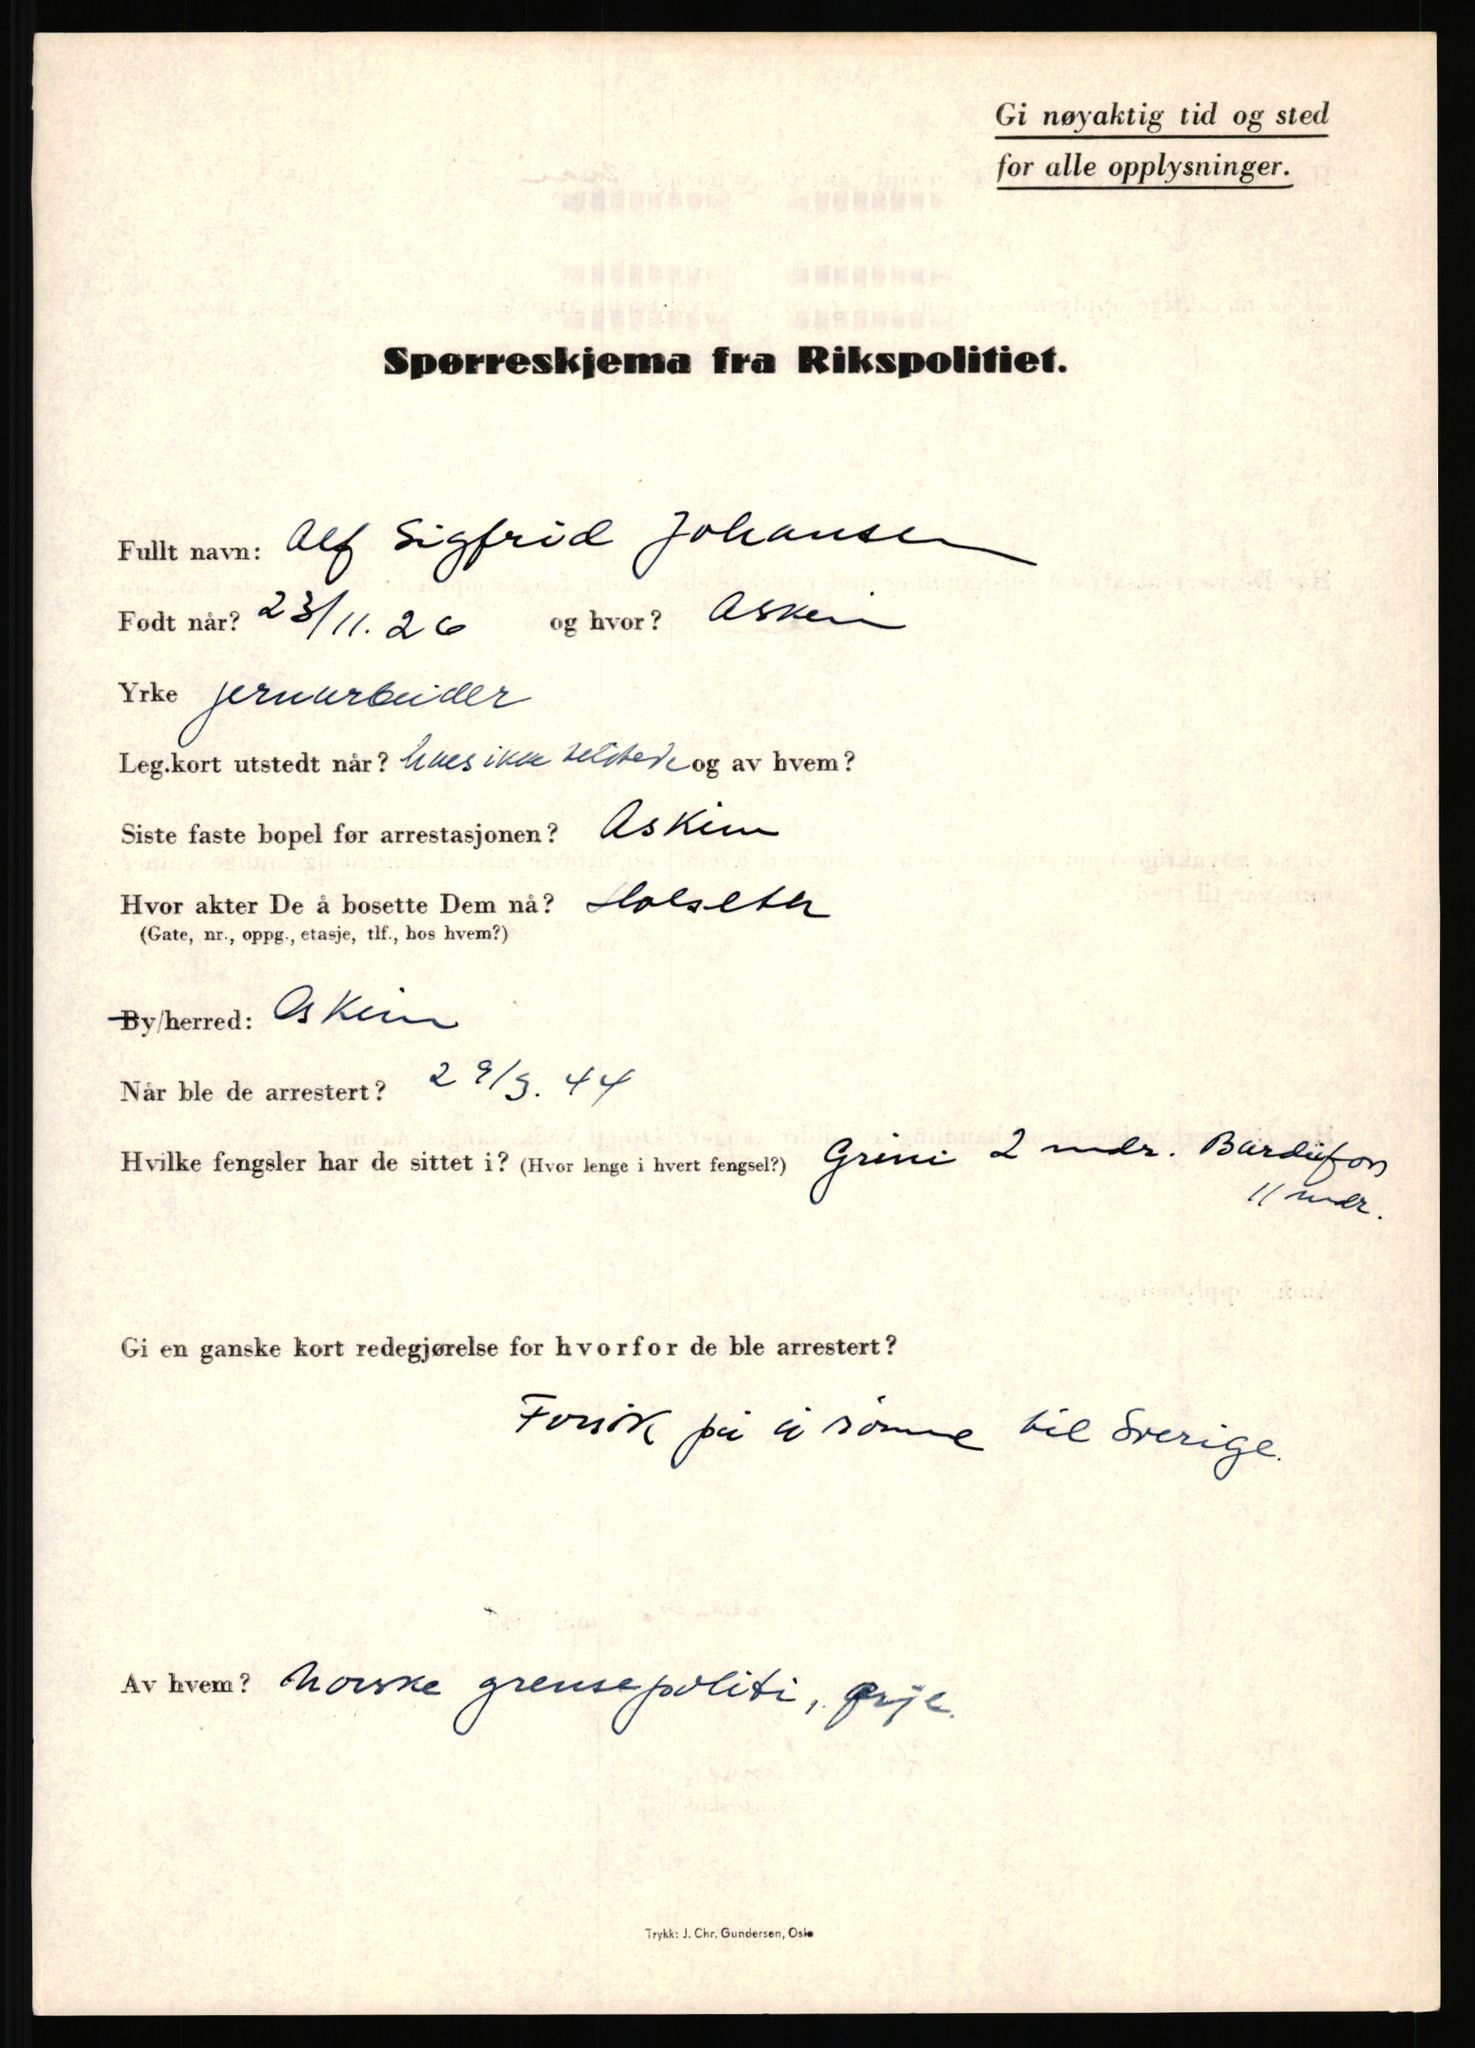 Gi nøyaktig tid og sted
for alle opplysninger.
Spørreskjema fra Rikspolitiet.
Fullt navn: Alf Sigfrid Johansen
Født når? 23/11.26 og hvor? Askim
Yrke jernarbeider
Leg.kort utstedt når? haes ikke tilstede og av hvem?
Siste faste bopel før arrestasjonen? Askim
Hvor akter De å bosette Dem nå? Holseter
(Gate, nr., oppg., etasje, tlf., hos hvem?)
By/herred: Askim
Når ble de arrestert? 29/3.44
Hvilke fengsler har de sittet i? (Hvor lenge i hvert fengsel?) Grini 2 mdr. Bardufoss
11 mdr.
Gi en ganske kort redegjørelse for hvorfor de ble arrestert?
Forsøk på å rømme til Sverige.
Av hvem? Norske grensepoliti, Ørje.
Trykk: J. Chr. Gundersen, Oslo